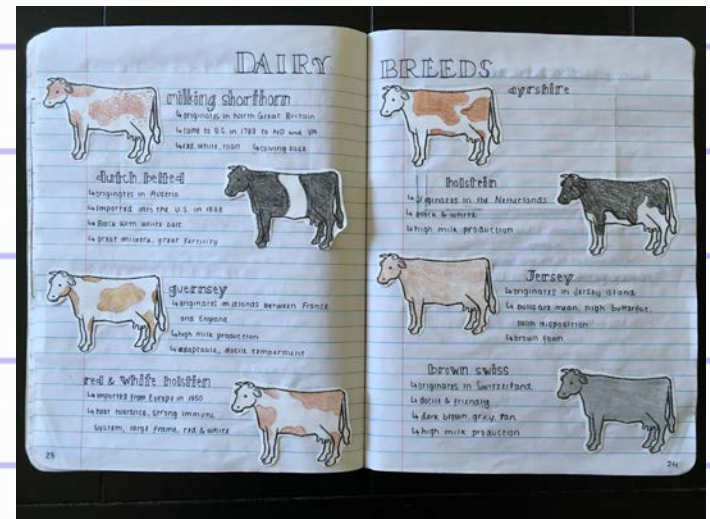 DAIRY BREEDS
milking shorthorn
↳originates in North Great Britain
↳came to U.S. in 1783 to MD and VA
↳red, white, roan ↳calving ease
dutch belted
↳originates in Austria
↳imported into the U.S. in 1838
↳Black with white belt
↳great milkers, great fertility
guernsey
↳originates in islands between France
and England
↳high milk production
↳adaptable, docile temparment
red & white holstien
↳imported from Europe in 1950
↳heat tolerance, strong immune
system, large frame, red & white
25
ayrshire
holstein
↳originates in the Netherlands
↳black & white
↳high milk production
Jersey
↳originates in Jersey island
↳bulls are mean, high butterfat,
calm disposition
↳brown fawn
brown swiss
↳originates in Switzerland
↳docile & friendly
↳dark brown, grey, tan
↳high milk production